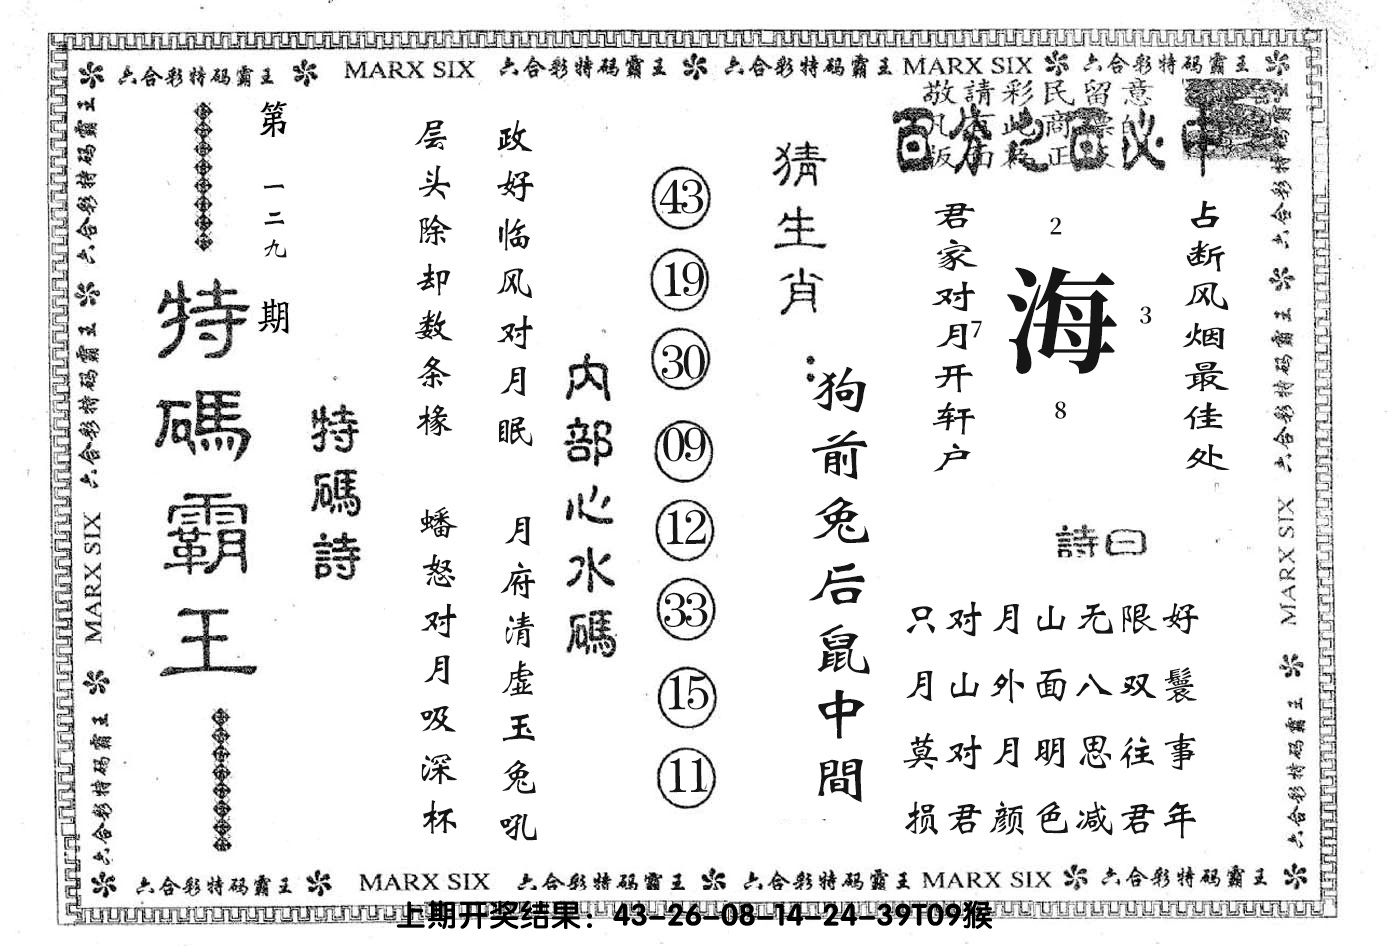 六合彩特码霸王 MARX SIX 六合彩特码霸王 六合彩特码霸王 MARX SIX 六合彩特码霸王
敬請彩民留意
百分之百必中
第一二九期
特碼霸王
特碼詩
层头除却数条椽
蟠怒对月吸深杯
政好临风对月眠
月府清虚玉兔吼
内部心水碼
43
19
30
09
12
33
15
11
猜生肖：
狗前兔后鼠中間
君家对月开轩户
2
7
海
3
8
占断风烟最佳处
詩曰
只对月山无限好
月山外面八双鬟
莫对月明思往事
损君颜色减君年
六合彩特码霸王 六合彩特码霸王 MARX SIX 六合彩特码霸王
六合彩特码霸王 六合彩特码霸王 MARX SIX 六合彩特码霸王
六合彩特码霸王 MARX SIX 六合彩特码霸王 六合彩特码霸王 MARX SIX 六合彩特码霸王
上期开奖结果：43-26-08-14-24-39T09猴